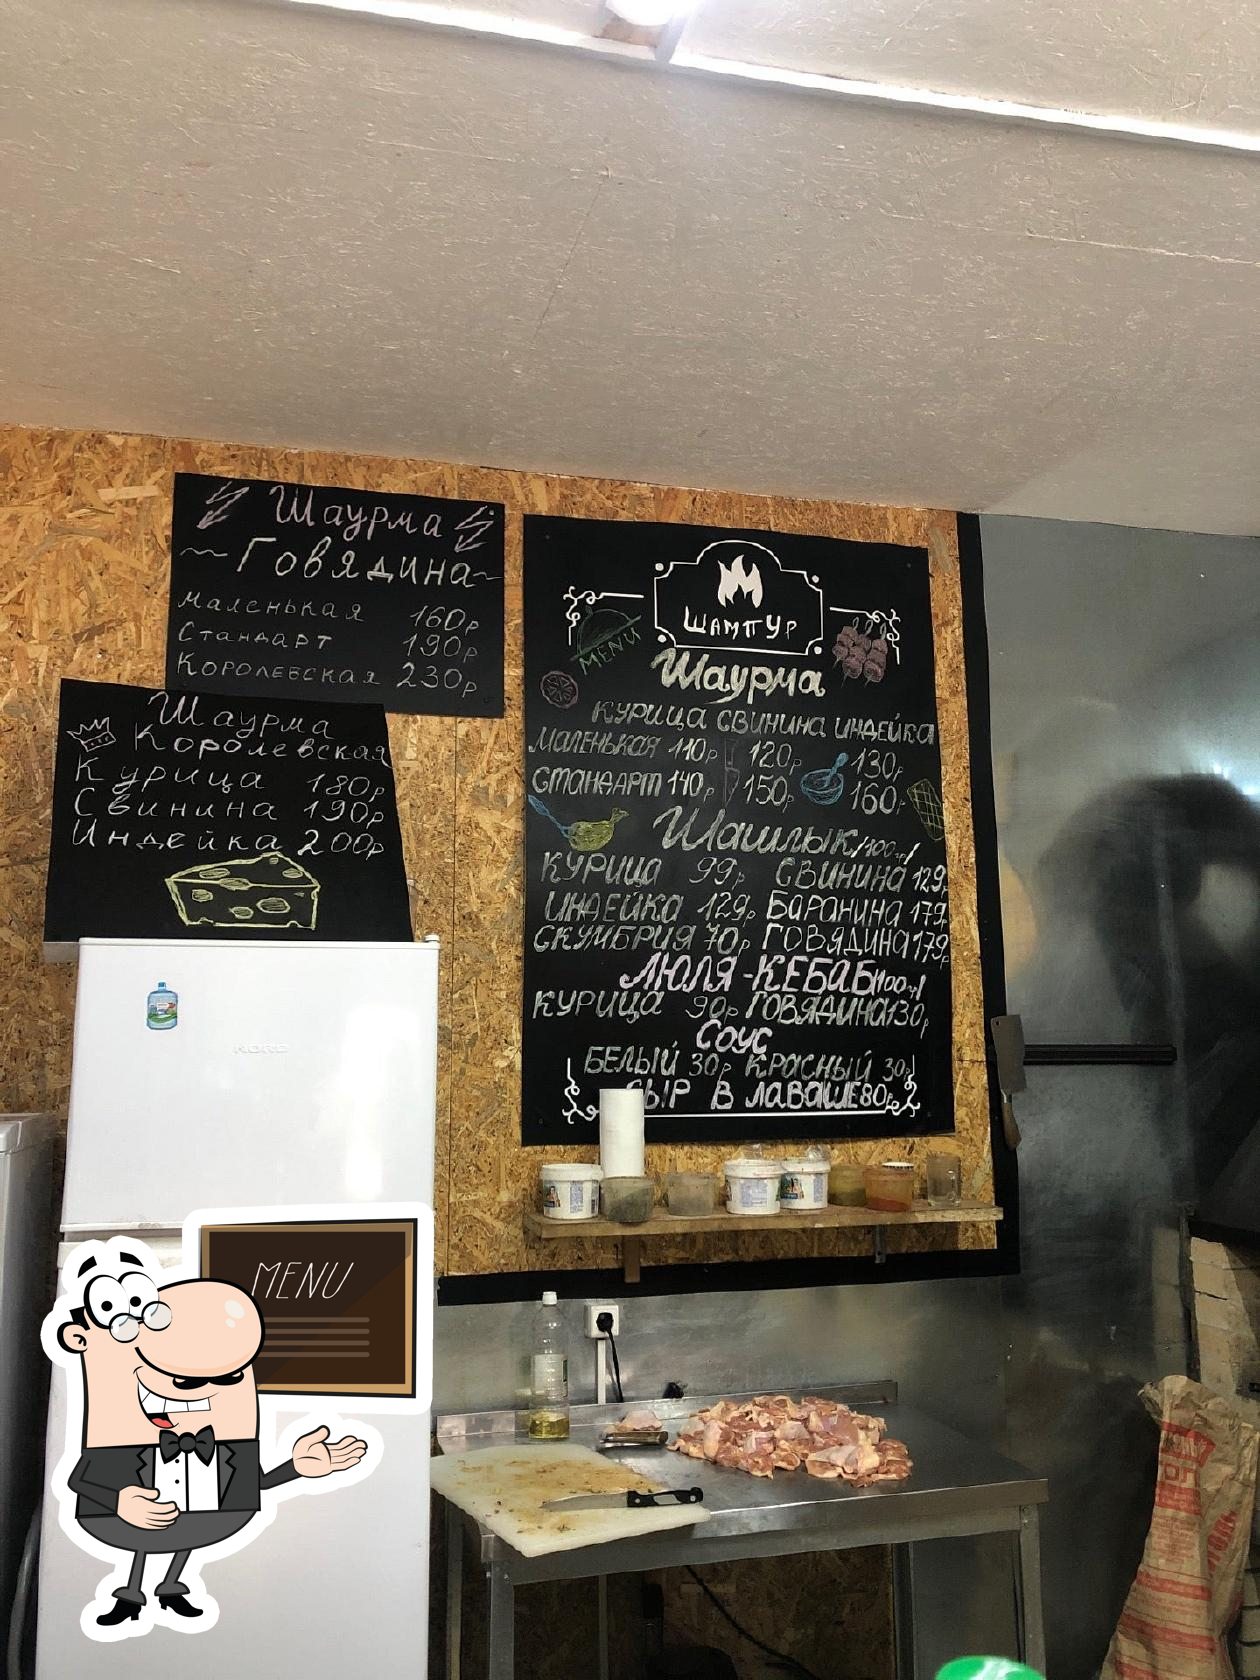 Шаурма
Говядина
Маленькая 160р
Стандарт 190р
Королевская 230р
Шаурма
Королевская
Курица 180р
Свинина 190р
Индейка 200р
ШАМПУР
MENU
Шаурма
КУРИЦА СВИНИНА ИНДЕЙКА
МАЛЕНЬКАЯ 110р 120р 130р
СТАНДАРТ 140р 150р 160р
Шашлык /100гр/
КУРИЦА 99р СВИНИНА 129р
ИНДЕЙКА 129р БАРАНИНА 179р
СКУМБРИЯ 70р ГОВЯДИНА 179р
ЛЮЛЯ-КЕБАБ /100гр/
КУРИЦА 90р ГОВЯДИНА 130р
Соус
БЕЛЫЙ 30р КРАСНЫЙ 30р
СЫР В ЛАВАШЕ 80р
MENU